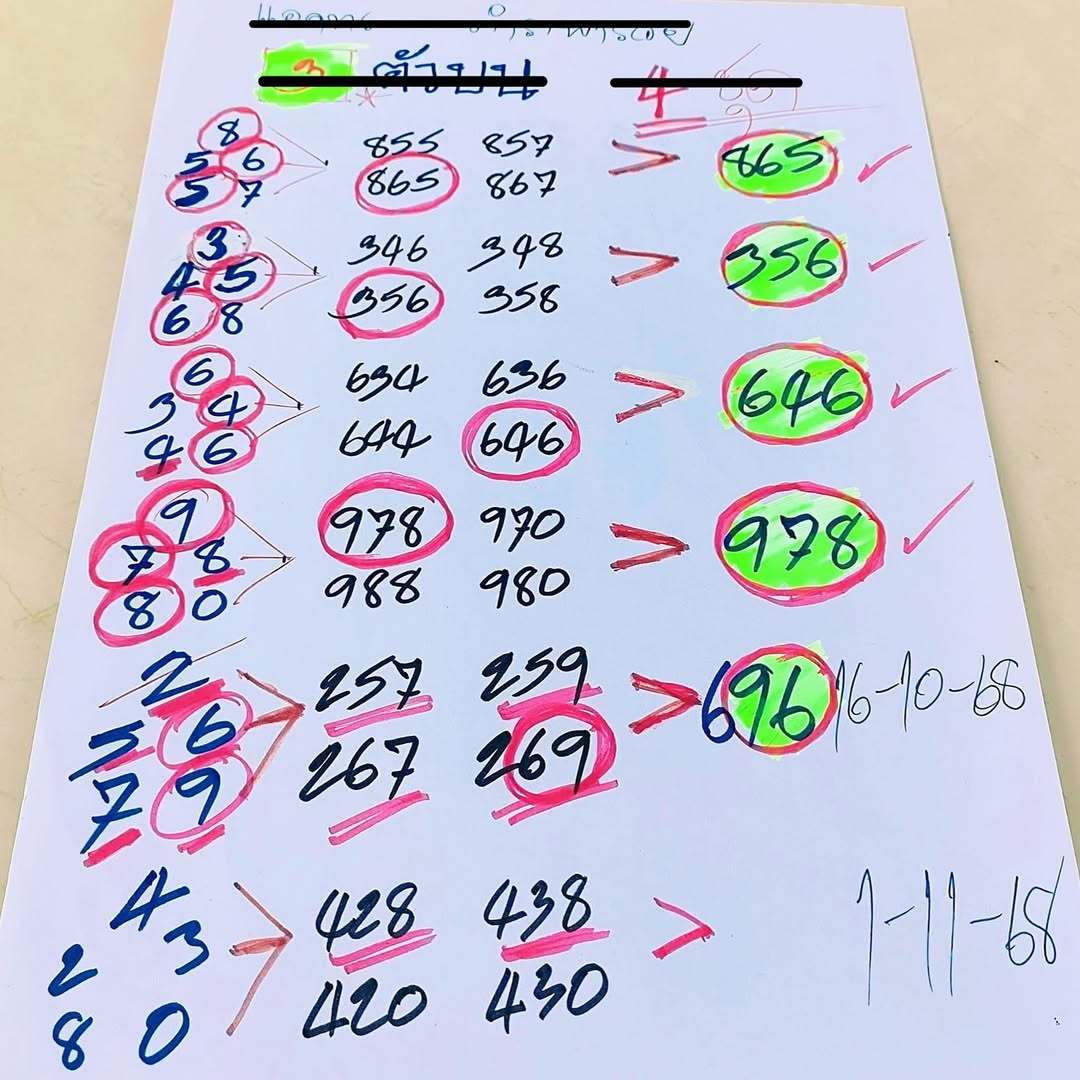 3 ตัวบน 4
8
5 6 855 857 > 865
5 7 865 867
3 346 348
4 5 > 356
6 8 356 358
6 634 636
3 4 > 646
4 6 644 646
9 978 970
7 8 > 978
8 0 988 980
2 257 259
5 6 > > 696 16-10-68
7 9 267 269
4 428 438
2 3 > > 1-11-68
8 0 420 430